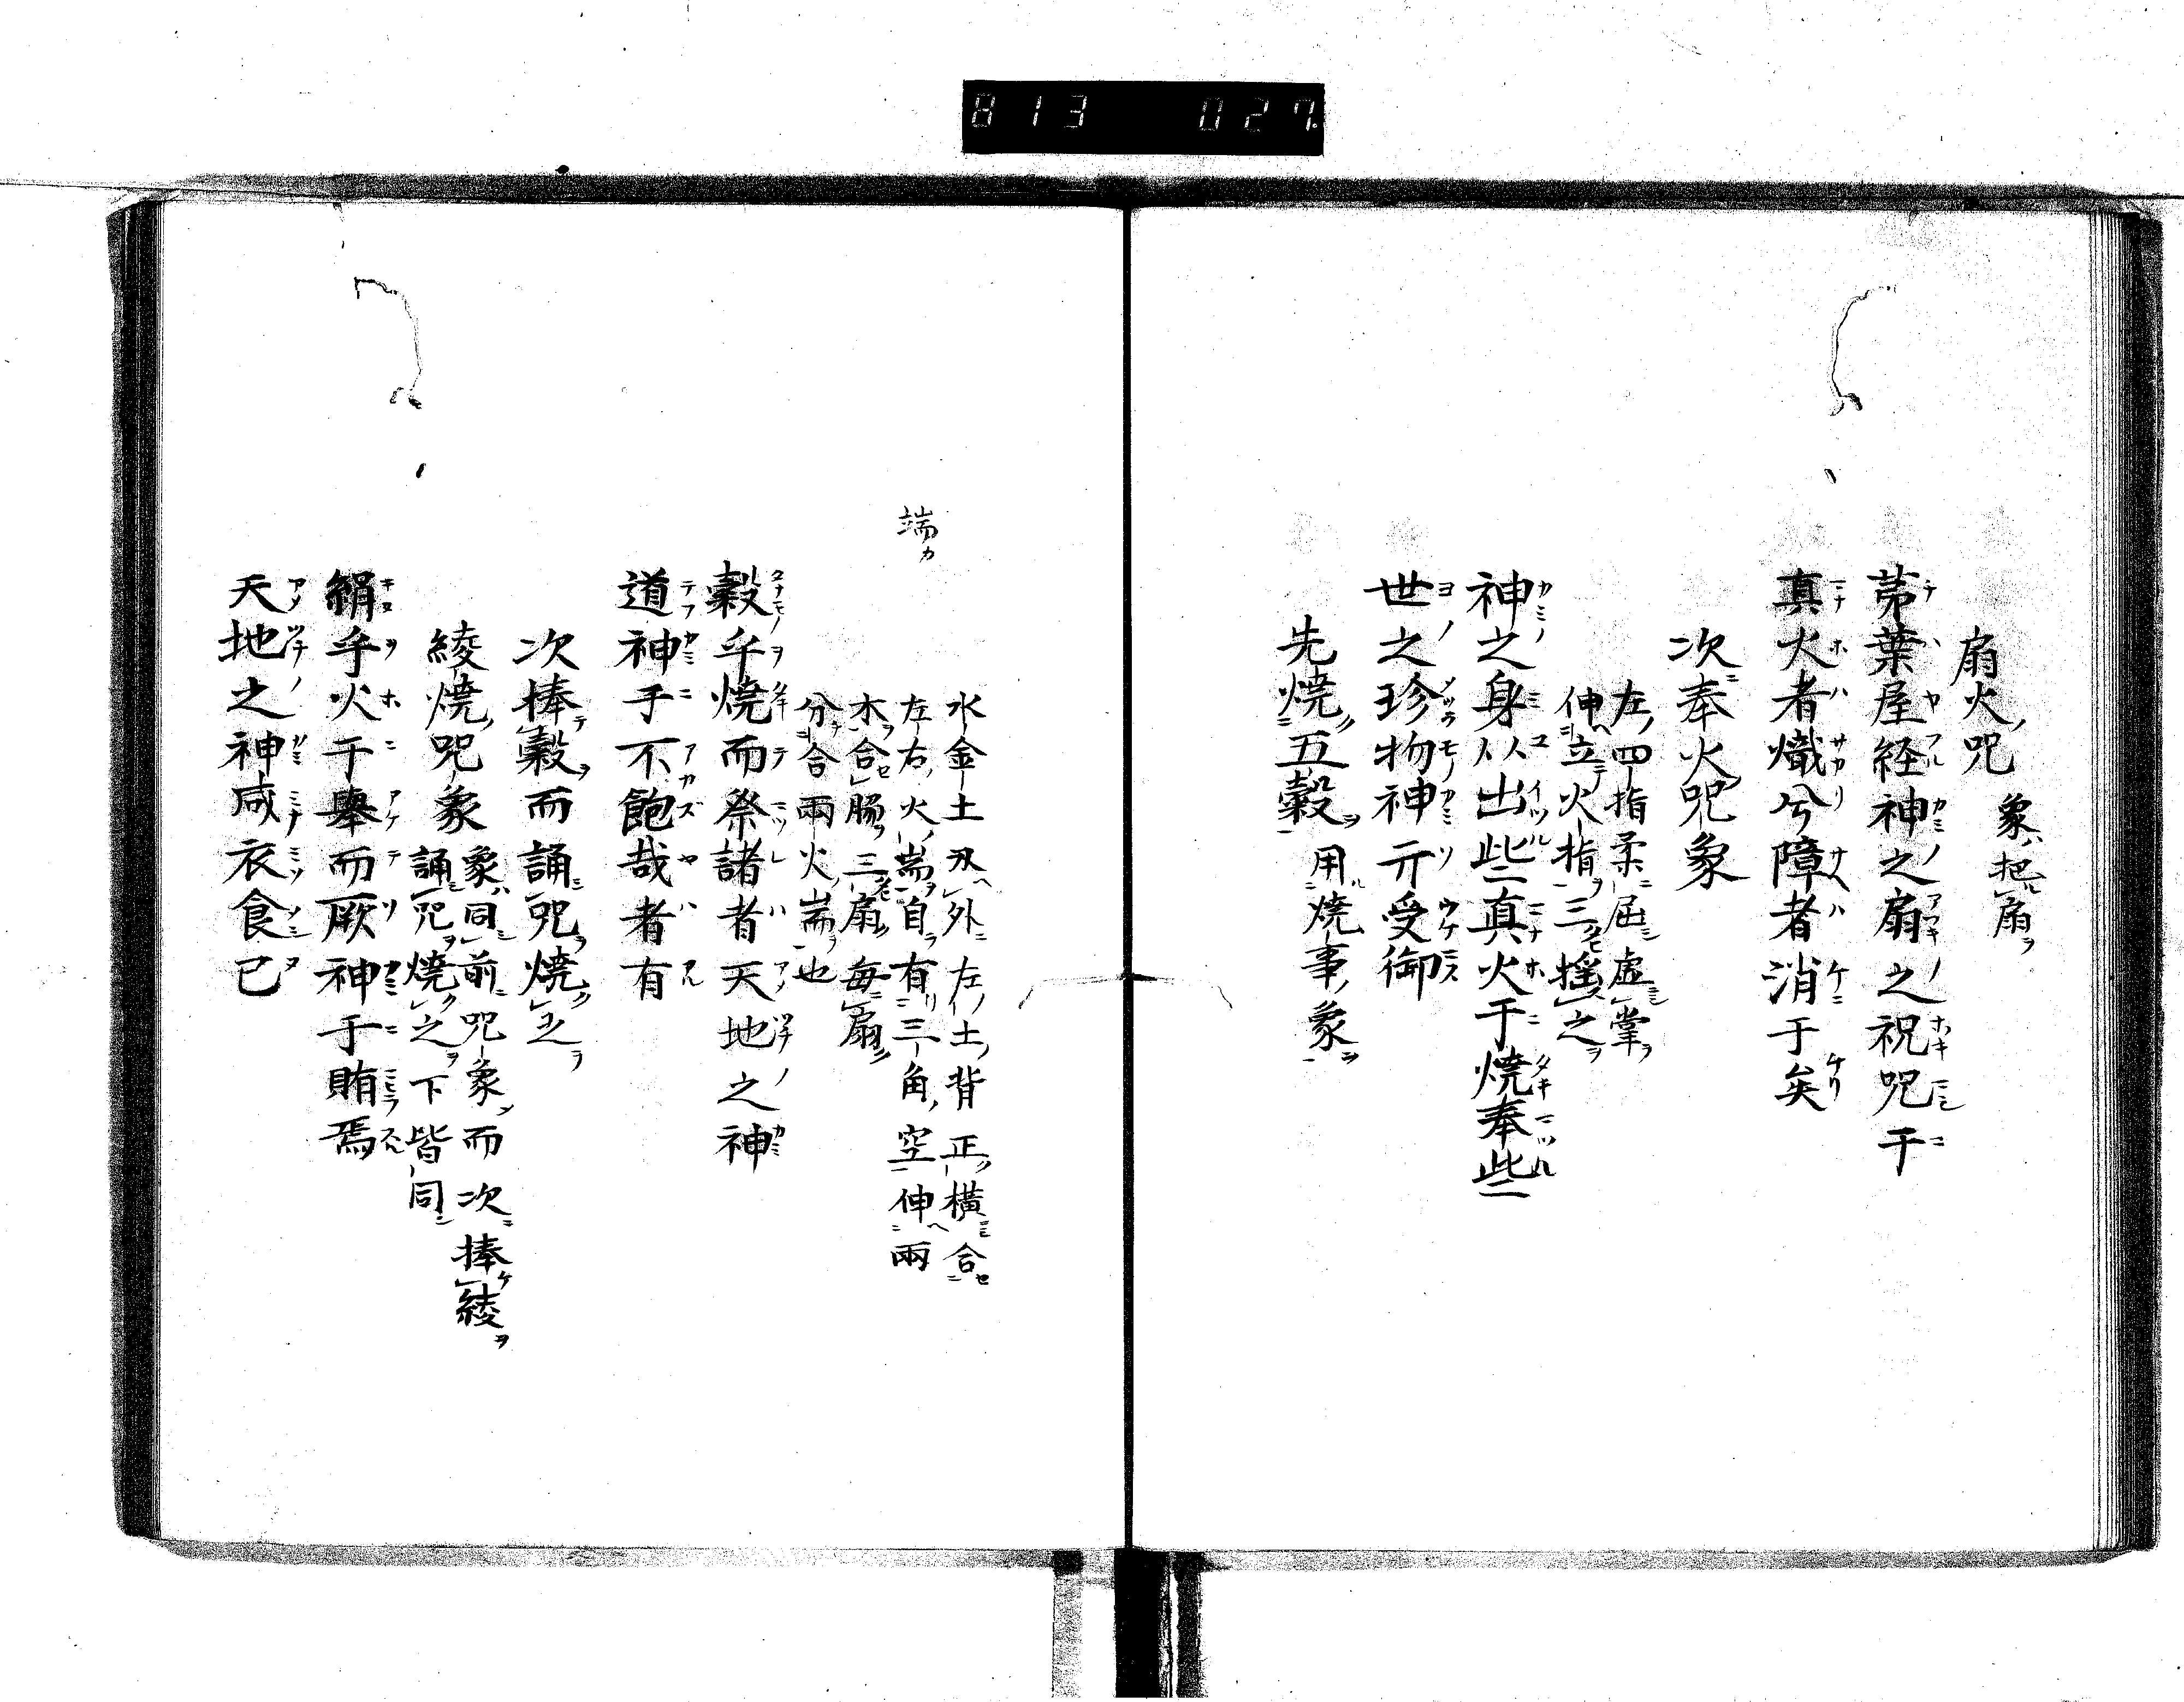 813 027
扇火咒 象把扇
茅葉屋経神之扇之祝咒于
真火者熾兮障者消于矣
次奉火咒象
左四指柔屈虚掌
伸立火指三揺之
神之身以出些真火于焼奉些
世之珍物神亓受御
先焼五穀用焼事象
水金土 外左土背正横合
左右火耑自有三角空伸兩
木合腸三扇毎扇
分合兩火耑也
端カ
穀乎焼而祭諸者天地之神
道神于不飽哉者有
次捧穀而誦咒焼之
綾焼咒象 象同前咒象而次捧綾
誦咒焼之下皆同
絹乎火于舉而厥神于賄焉
天地之神咸衣食已